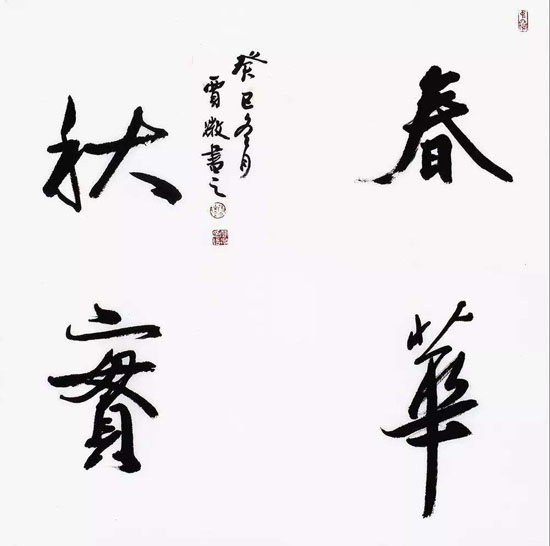 春華
秋實
癸巳冬月
賈敬書之